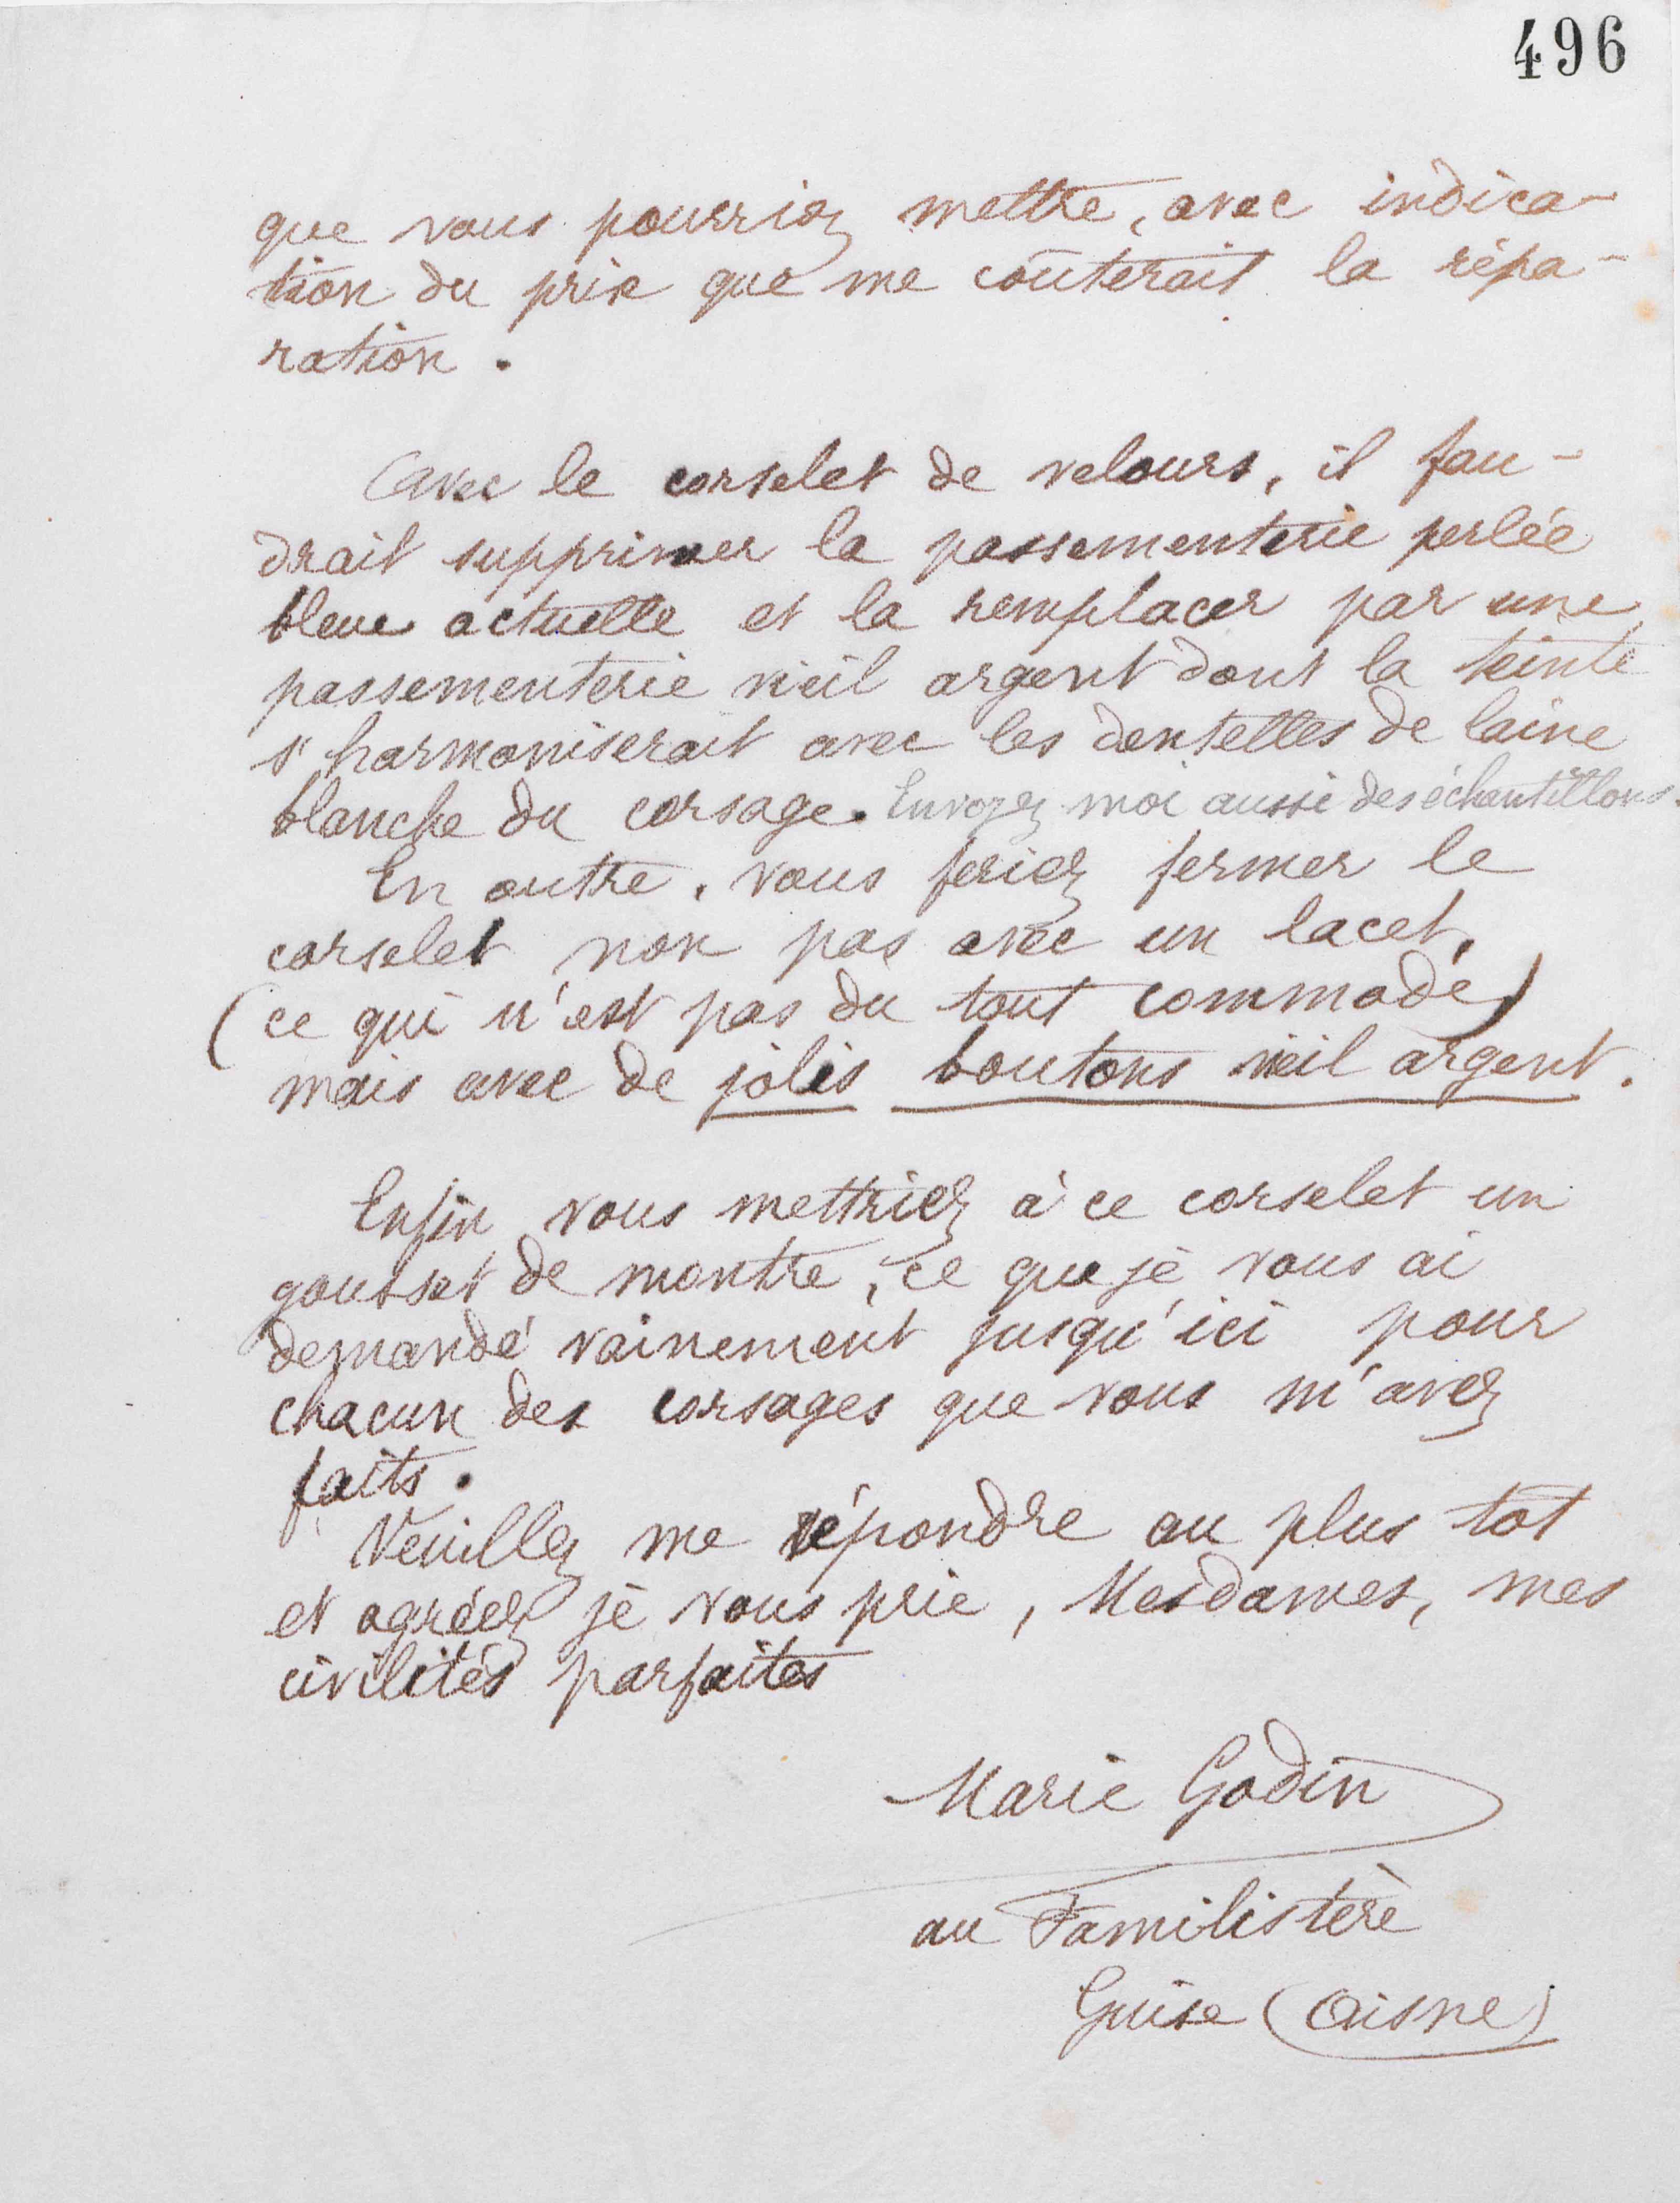 496
que vous pourriez mettre, avec indica-
tion du prix que me coûterait la répa-
ration.
Avec le corselet de velours, il fau-
drait supprimer la passementerie perlée
bleue actuelle et la remplacer par une
passementerie vieil argent dont la teinte
s'harmoniserait avec les dentelles de laine
blanche du corsage. Envoyez moi aussi des échantillons.
En outre, vous feriez fermer le
corselet non pas avec un lacet,
(ce qui n'est pas du tout commode)
mais avec de jolis boutons vieil argent.
Enfin vous mettriez à ce corselet un
gousset de montre, ce que je vous ai
demandé vainement jusqu'ici pour
chacun des corsages que vous m'avez
faits.
Veuillez me répondre au plus tôt
et agréez je vous prie, Mesdames, mes
civilités parfaites
Marie Godin
au Familistère
Guise (Aisne)